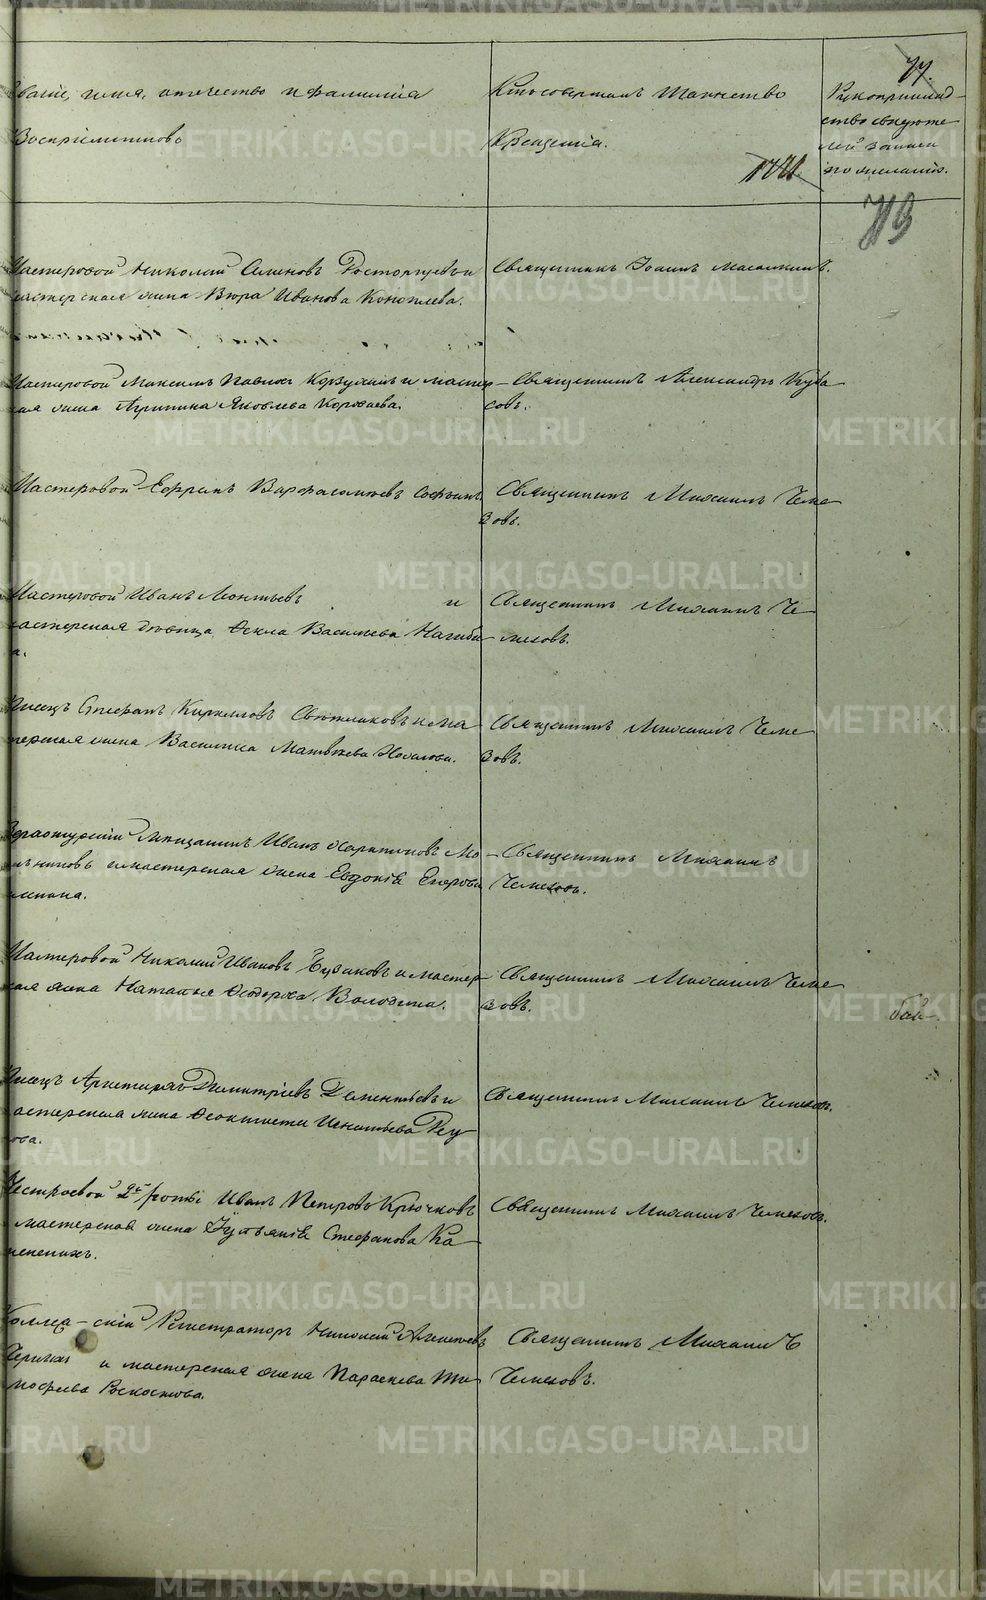 Званіе, имя, отчество и фамилія
Воспріемниковъ
Кто совершалъ Таинство
Крещенія.
77.
Рукоприклад-
ство свидѣте
лей записи
по желанію.
Мастеровой Николай Семеновъ Расторгуевъ и
мастерская жена Вѣра Иванова Коноплева.
Священникъ Іоаннъ
Мастеровой Максимъ Павловъ Корзухинъ и мастер-
ская жена Агрипина Яковлева Короваева.
Священникъ Александръ Куда
совъ.
Мастеровой Ефремъ Варфаломѣевъ
Священникъ Михаилъ Чеме
зовъ.
Мастеровой Иванъ Леонтьевъ и
мастерская дѣвица Ѳекла Васильева Нагиби
а.
Священникъ Михаилъ Че
мезовъ.
Писецъ Стефанъ Кирилловъ Свѣтлаковъ и ма
терская жена Василиса Матвѣева
Священникъ Михаилъ Чеме
зовъ.
мѣщанинъ Иванъ Харитоновъ Ме
льниковъ и мастерская жена Евдокія Егорова
Священникъ Михаилъ
Чемезовъ.
Мастеровой Николай Ивановъ Бузаковъ и мастер-
ская жена Наталья Ѳедорова Володина.
Священникъ Михаилъ Чеме
зовъ.
бай
Писецъ Димитріевъ Дементьевъ и
мастерская жена Ѳеоктиста Игнатьева Реу
това.
Священникъ Михаилъ Чемезовъ.
Нестроевой 2й роты Иванъ Петровъ Крючковъ
и мастерская жена Іуліанія Стефанова Ка
менскихъ.
Священникъ Михаилъ Чемезовъ.
Коллеж-скій Регистраторъ Николай Алексѣевъ
и мастерская жена Параскева Ти
мофеева
Священникъ Михаилъ
Чемезовъ.
METRIKI.GASO-URAL.RU